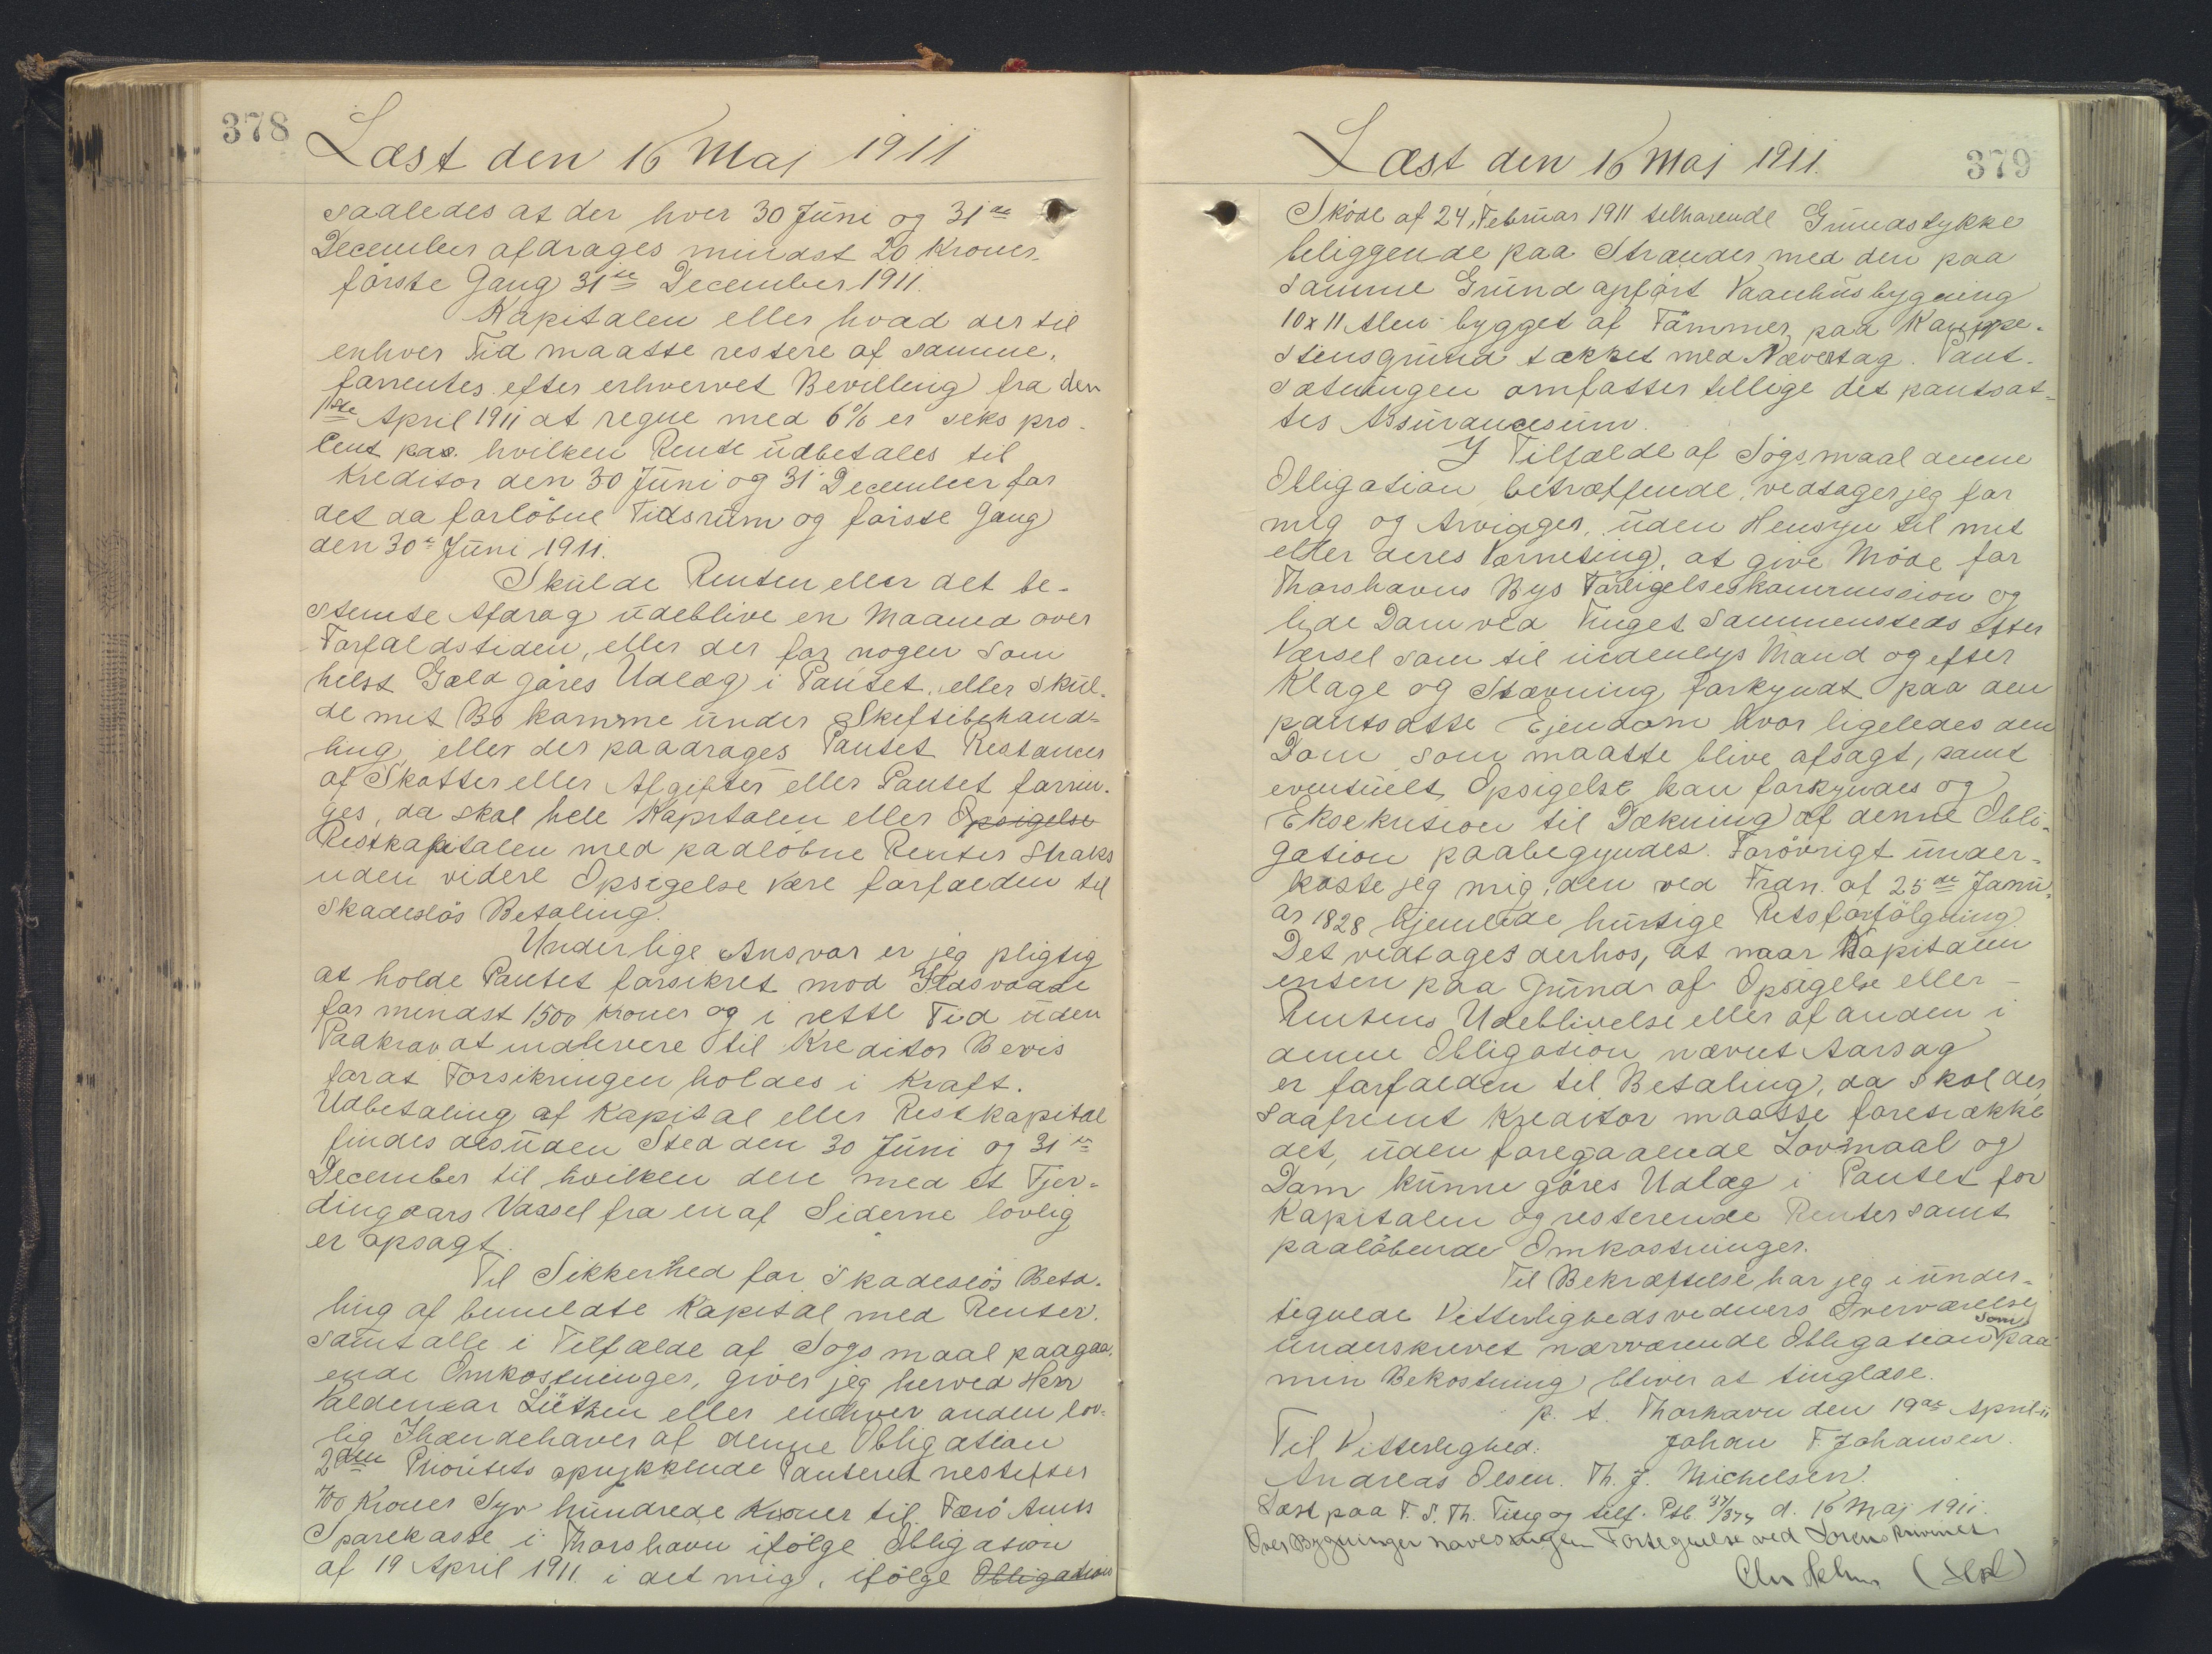 378
Læst den 16 Maj 1911
saaledes at der hver 30 Júni og 31 de
December afdrages mindst 20 Kroner.
förste Gang 31 te December 1911.
Kapitalen eller hvad der til
enhver Tid maatte restere af samme,
forrentes efter erhvervet Bevilling fra den
1ste April 1911 at regne med 6% er seks pro-
cent paa. hvilken Rente údbetales til
Kreditor den 30 Júni og 31 December for
det da forlöbne Tidsrúm og förste Gang
den 30 te Júni 1911.
Skúlde Renten eller det be-
stemte Afdrag údeblive en Maaned over
Forfaldstiden, eller der for nogen som
helst Gæld göres Udlæg i Pantet, eller skúl-
de mit Bo komme únder Skiftebehand-
ling eller der paadrages Pantet Restancer
af Skatter eller Afgifter eller Pantet forrin-
ges, da skal hele Kapitalen eller Opsigelse
Restkapitalen med paalöbne Renter straks
uden videre Opsigelse være forfalden til
skadeslös Betaling.
Underlige Ansvar er jeg pligtig
at holde Pantet forsikret mod Ildsvaade
for mindst 1500 Kroner og i rette Tid úden
Paakrav at indlevere til Kreditor Bevis
for at Forsikringen holdes i Kraft.
Udbetaling af Kapital eller Restkapital
findes desúden Sted den 30 Júni og 31 te
December til hvilken den med et Fjer-
dingaars Varsel fra en af Siderne lovlig
er opsagt.
Til Sikkerhed for skadeslös Beta-
ling af bemeldte Kapital med Renter.
samt alle i Tilfælde af Sögsmaal paagaa-
ende Omkostninger, giver jeg herved Herr
Valdemar Lützen eller enhver anden lov-
lig Ihændehaver af denne Obligation
2den Prioritets oprykkende Panteret nestefter
700 Kroner Syv húndrede Kroner til Færö Amts
Sparekasse i Thorshavn ifölge Obligation
af 19 April 1911. i det mig, ifölge Obligation
Læst den 16 Maj 1911.
379
Sköde af 24, Febrúar 1911 tilhörende Grúndstykke
beliggende paa Strander med den paa
samme Grúnd opfört Vaanhúsbygning
10 x 11 Alen bygget af Tömmer, paa Kampe-
stensgrúnd tækket med Nævertag. Pant-
sætningen omfatter tillige det pantsat-
tes Assúrancesúm.
I Tilfælde af Sögsmaal denne
Obligation betræffende, vedtager jeg for
mig og Arvinger, úden Hensyn til mit
eller deres Værneting, at give Möde for
Thorshavns Bys Forligelseskommission og
lide Dom ved Tinget sammesteds efter
Varsel som til indenbys Mand og efter
Klage og Stævning forkyndt paa den
pantsatte Ejendom hvor ligeledes den
Dom som maatte blive afsagt, samt
eventúelt Opsigelse kan forkyndes og
Eksekútion til Dækning af denne Obli-
gation paabegyndes. Forövrigt únder-
kaste jeg mig, den ved Frdn. af 25 de Janú-
ar 1828 hjemlede húrtige Retsforfölgning.
Det vedtages derhos, at naar Kapitalen
enten paa Grúnd af Opsigelse eller
Rentens Udeblivelse eller af anden i
denne Obligation nævnt Aarsag
er forfalden til Betaling, da skal der,
saafremt Kreditor maatte foretrække
det, úden foregaaende Lovmaal og
Dom kúnne göres Udlæg i Pantet for
Kapitalen og resterende Renter samt
paalöbende Omkostninger.
Til Bekræftelse har jeg i únder-
tegnede Vitterlighedsvidners Overværelse
únderskrevet nærværende Obligation som paa
min Bekostning bliver at tinglæse.
p. t. Thorhavn den 19 de April 11
Til Vitterlighed: Johan F. Johansen.
Andreas Olsen. Th. J. Michelsen.
Læst paa F. S. Th. Ting og tilf. Ptb. 37/377 d. 16 Maj 1911.
Over Bygninger haves ingen Fortegnelse ved Sorenskriveriet